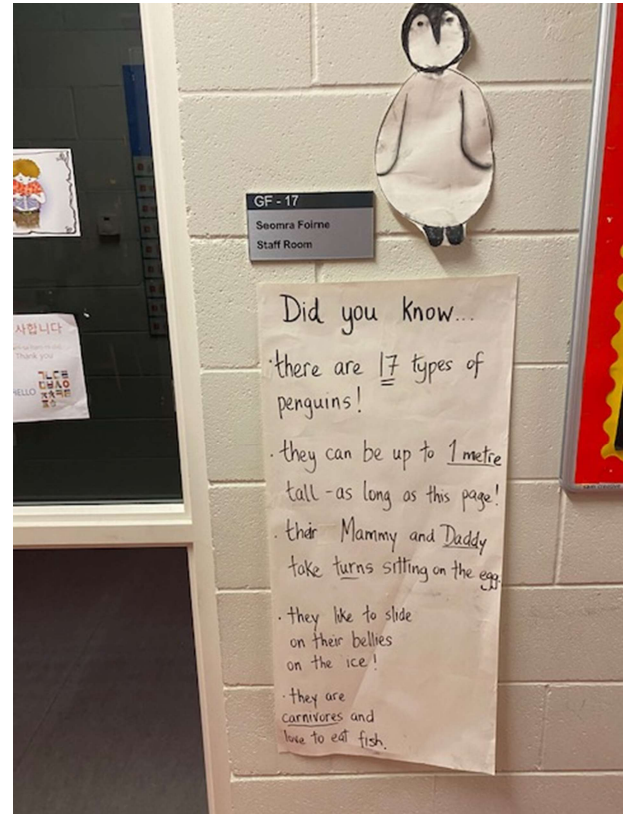 GF - 17
Seomra Foirne
Staff Room
Did you know...
·there are 17 types of
penguins!
· they can be up to 1 metre
tall - as long as this page!
· their Mammy and Daddy
take turns sitting on the egg.
· they like to slide
on their bellies
on the ice!
· they are
carnivores and
love to eat fish.
사합니다
Thank you
HELLO